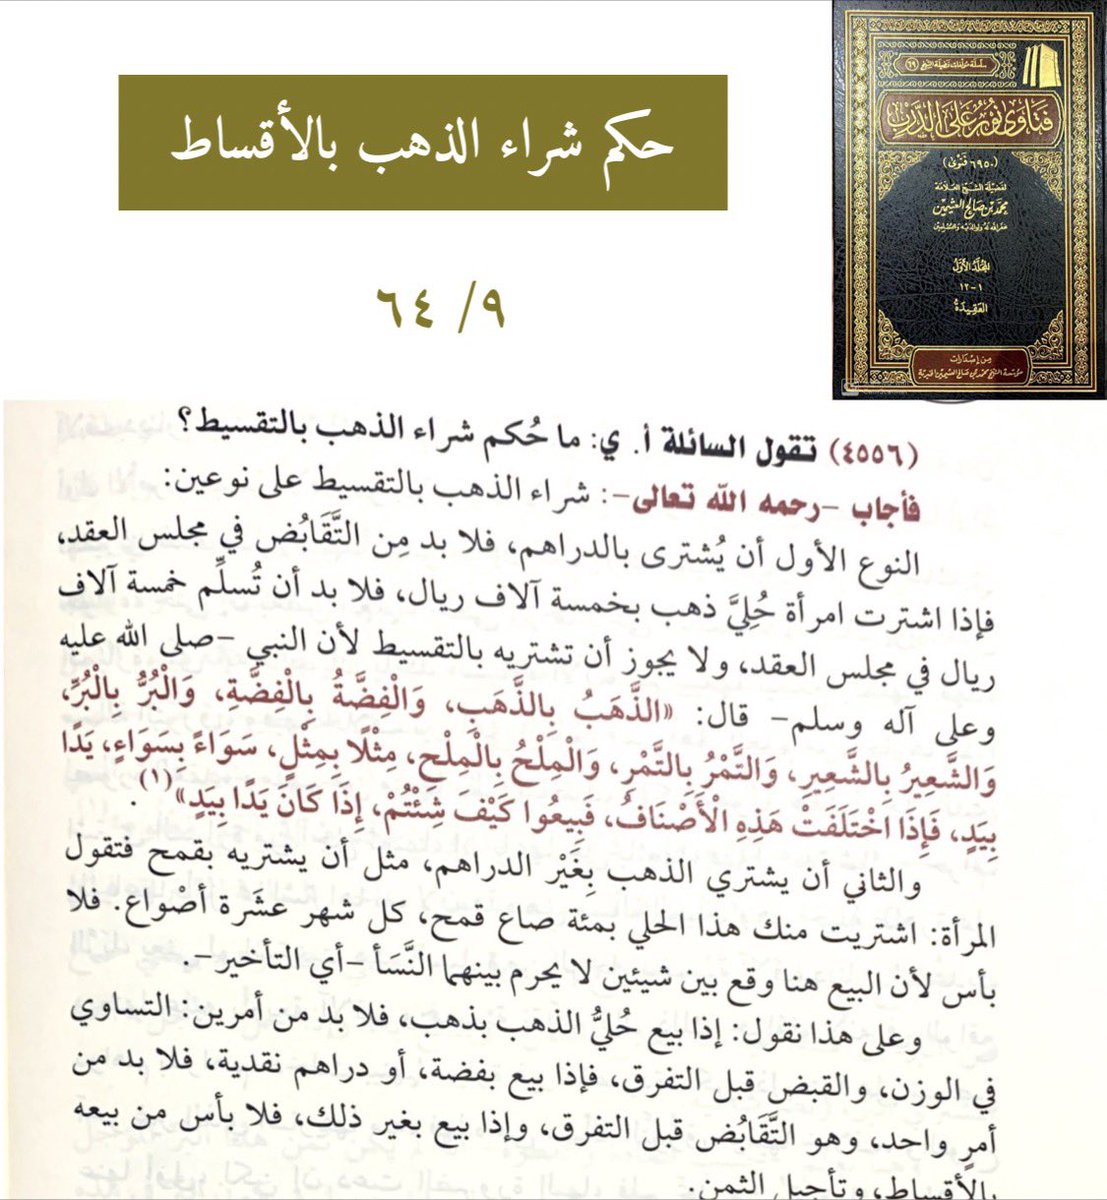 حكم شراء الذهب بالأقساط
٩/ ٦٤
سلسلة مؤلفات فضيلة الشيخ (٦٩)
فتاوى نور على الدرب
(٦٩٥٠ فتوى)
لفضيلة الشيخ العلامة
محمد بن صالح العثيمين
غفر الله له ولوالديه وللمسلمين
المجلد الأول
١-١٢
العقيدة
من إصدارات
مؤسسة الشيخ محمد بن صالح العثيمين الخيرية
(٤٥٥٦) تقول السائلة أ. ي: ما حُكم شراء الذهب بالتقسيط؟
فأجاب -رحمه الله تعالى-: شراء الذهب بالتقسيط على نوعين:
النوع الأول أن يُشترى بالدراهم، فلا بد مِن التَّقَابُض في مجلس العقد،
فإذا اشترت امرأة حُلِيَّ ذهب بخمسة آلاف ريال، فلا بد أن تُسلِّم خمسة آلاف
ريال في مجلس العقد، ولا يجوز أن تشتريه بالتقسيط لأن النبي -صلى الله عليه
وعلى آله وسلم- قال: «الذَّهَبُ بِالذَّهَبِ، وَالْفِضَّةُ بِالْفِضَّةِ، وَالْبُرُّ بِالْبُرِّ،
وَالشَّعِيرُ بِالشَّعِيرِ، وَالتَّمْرُ بِالتَّمْرِ، وَالْمِلْحُ بِالْمِلْحِ، مِثْلًا بِمِثْلٍ، سَوَاءً بِسَوَاءٍ، يَدًا
بِيَدٍ، فَإِذَا اخْتَلَفَتْ هَذِهِ الْأَصْنَافُ، فَبِيعُوا كَيْفَ شِئْتُمْ، إِذَا كَانَ يَدًا بِيَدٍ»(١).
والثاني أن يشتري الذهب بِغَيْر الدراهم، مثل أن يشتريه بقمح فتقول
المرأة: اشتريت منك هذا الحلي بمئة صاع قمح، كل شهر عشرة أصْواع. فلا
بأس لأن البيع هنا وقع بين شيئين لا يحرم بينهما النَّسَأ -أي التأخير-.
وعلى هذا نقول: إذا بيع حُليُّ الذهب بذهب، فلا بد من أمرين: التساوي
في الوزن، والقبض قبل التفرق، فإذا بيع بفضة، أو دراهم نقدية، فلا بد من
أمرٍ واحد، وهو التَّقَابُض قبل التفرق، وإذا بيع بغير ذلك، فلا بأس من بيعه
بالأقساط، وتأجيل الثمن.